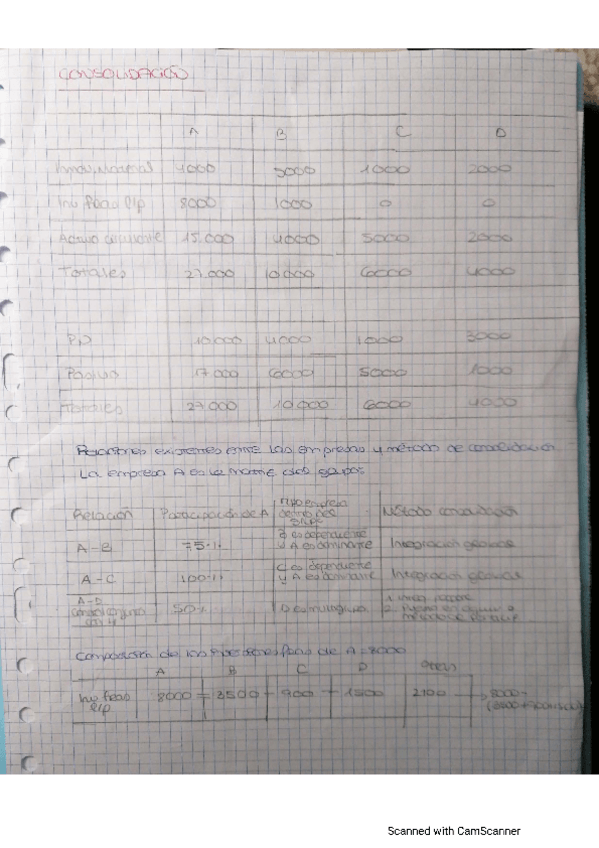 CONSOLIDACIÓN
A B C D
Inmov. Normal 4000 5000 1000 2000
Inv fcras l/p 8000 1000 0 0
Activo corriente 15.000 4000 5000 2000
Totales 27.000 10.000 6000 4000
PN 10.000 4000 1000 3000
Pasivo 17.000 6000 5000 1000
Totales 27.000 10.000 6000 4000
Relaciones existentes entre las empresas y método de consolidación
La empresa A es la matriz del grupo
Relación Participación de A Tipo empresa dentro del grupo Método consolidación
A-B 75% B es dependiente y A es dominante Integración global
A-C 100% C es dependiente y A es dominante Integración global
A-D 50% D es multigrupo
Composición de las inversiones fcras de A = 8000
A B C D otras
Inv fcras l/p 8000 3500 900 1500 2100 8000-
Scanned with CamScanner